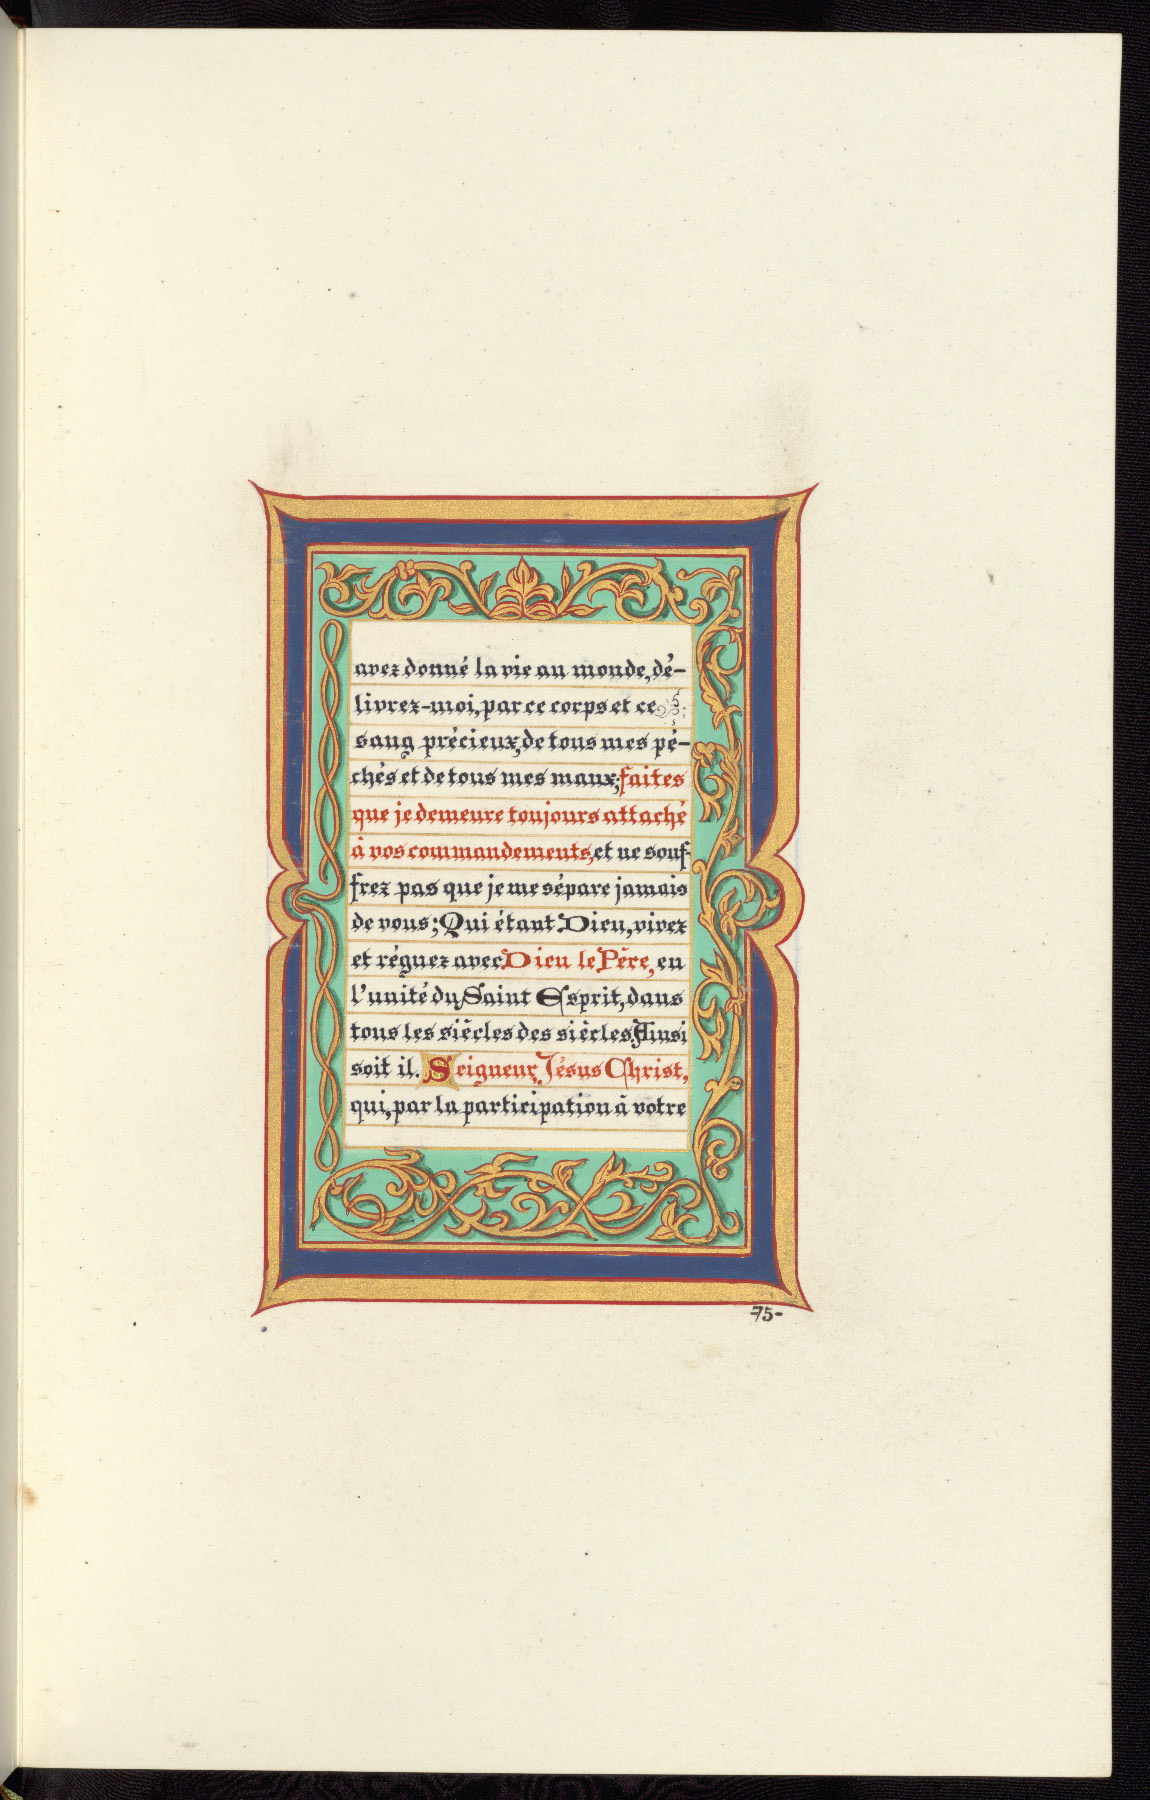 avez donné la vie au monde, dé-
livrez-moi, par ce corps et ce
sang précieux, de tous mes pé-
chés et de tous mes maux; faites
que je demeure toujours attaché
à vos commandements, et ne souf-
frez pas que je me sépare jamais
de vous; Qui étant Dieu, vivez
et régnez avec Dieu le Père, en
l'unité du Saint Esprit, dans
tous les siècles des siècles. Ainsi
soit il. Seigneur, Jésus Christ,
qui, par la participation à votre
75-